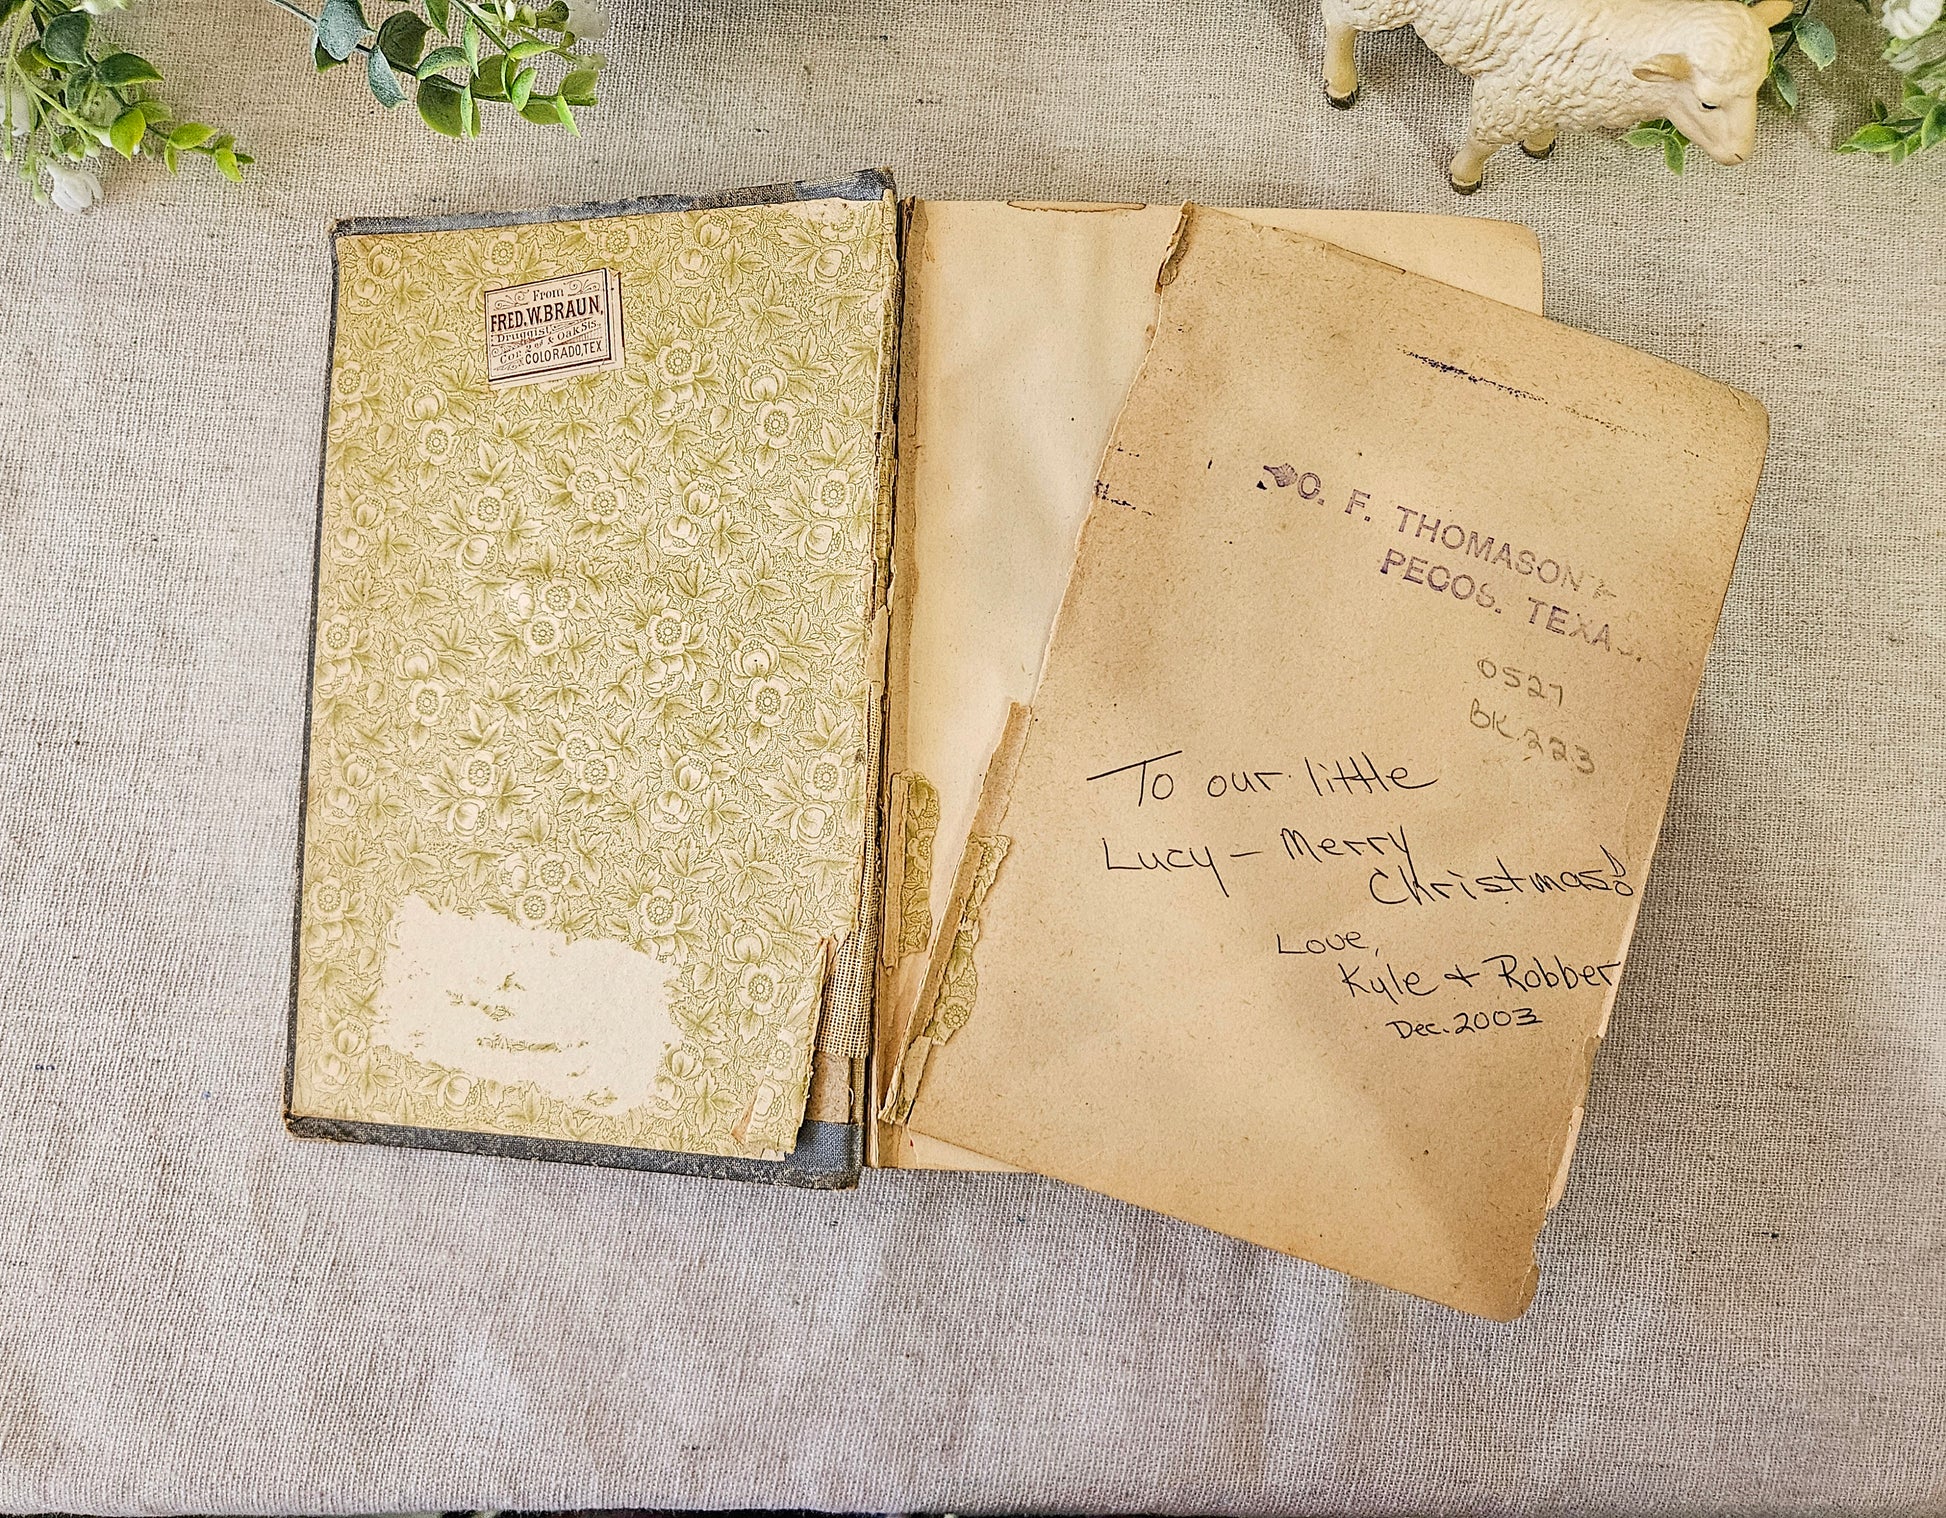 From
FRED.W.BRAUN,
Druggist,
Cor 2nd & Oak Sts.
COLORADO, TEX
C. F. THOMASON
PECOS. TEXA
0527
BK 223
To our little
Lucy – Merry
Christmas!
Love,
Kyle + Robber
Dec. 2003